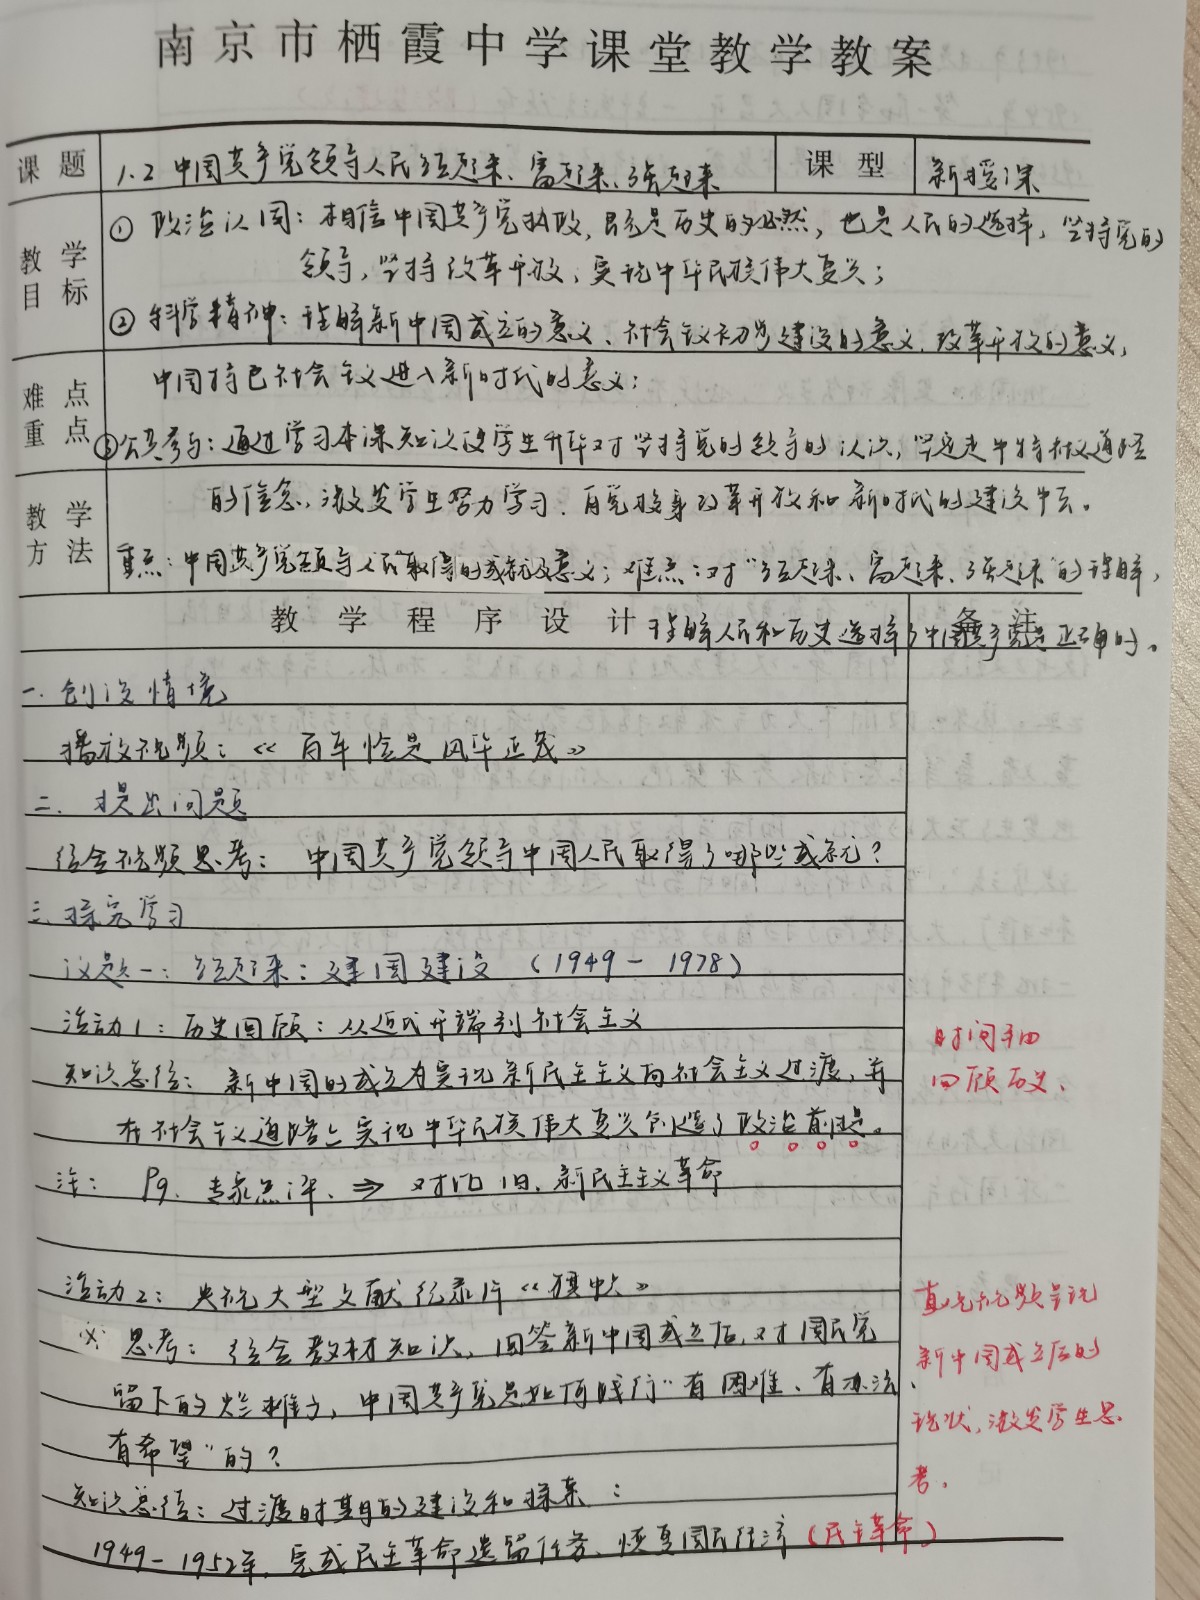 南京市栖霞中学课堂教学教案
课题 1.2 中国共产党领导人民站起来、富起来、强起来 课型 新授课
教学目标 ① 政治认同：相信中国共产党执政，既是历史的必然，也是人民的选择，坚持党的
领导，坚持改革开放，实现中华民族伟大复兴；
② 科学精神：理解新中国成立的意义、社会主义初步建设的意义、改革开放的意义，
难点重点 中国特色社会主义进入新时代的意义；
③公共参与：通过学习本课知识使学生升华对坚持党的领导的认识，坚定走中特社义道路
教学方法 的信念，激发学生努力学习、自觉投身改革开放和新时代的建设中去。
重点：中国共产党领导人民取得的成就及意义；难点：对“站起来、富起来、强起来”的理解，
教学程序设计 备注
理解人民和历史选择了中国共产党是正确的。
一. 创设情境
播放视频：《百年恰是风华正茂》
二. 提出问题
结合视频思考：中国共产党领导中国人民取得了哪些成就？
三. 探究学习
议题一：站起来：建国建设（1949－1978）
活动1：历史回顾：从近代开端到社会主义
知识总结：新中国的成立为实现新民主主义向社会主义过渡，并
在社会主义道路上实现中华民族伟大复兴创造了政治前提。
时间轴
回顾历史、
注：P9. 专家点评、⇒ 对比旧、新民主主义革命
活动2：央视大型文献纪录片《旗帜》
※ 思考：结合教材知识，回答新中国成立后，对国民党
留下的烂摊子，中国共产党是如何践行“有困难、有办法、
有希望”的？
直观视频呈现
新中国成立后的
现状，激发学生思
考.
知识总结：过渡时期的建设和探索：
1949－1952年，完成民主革命遗留任务、恢复国民经济（民主革命）